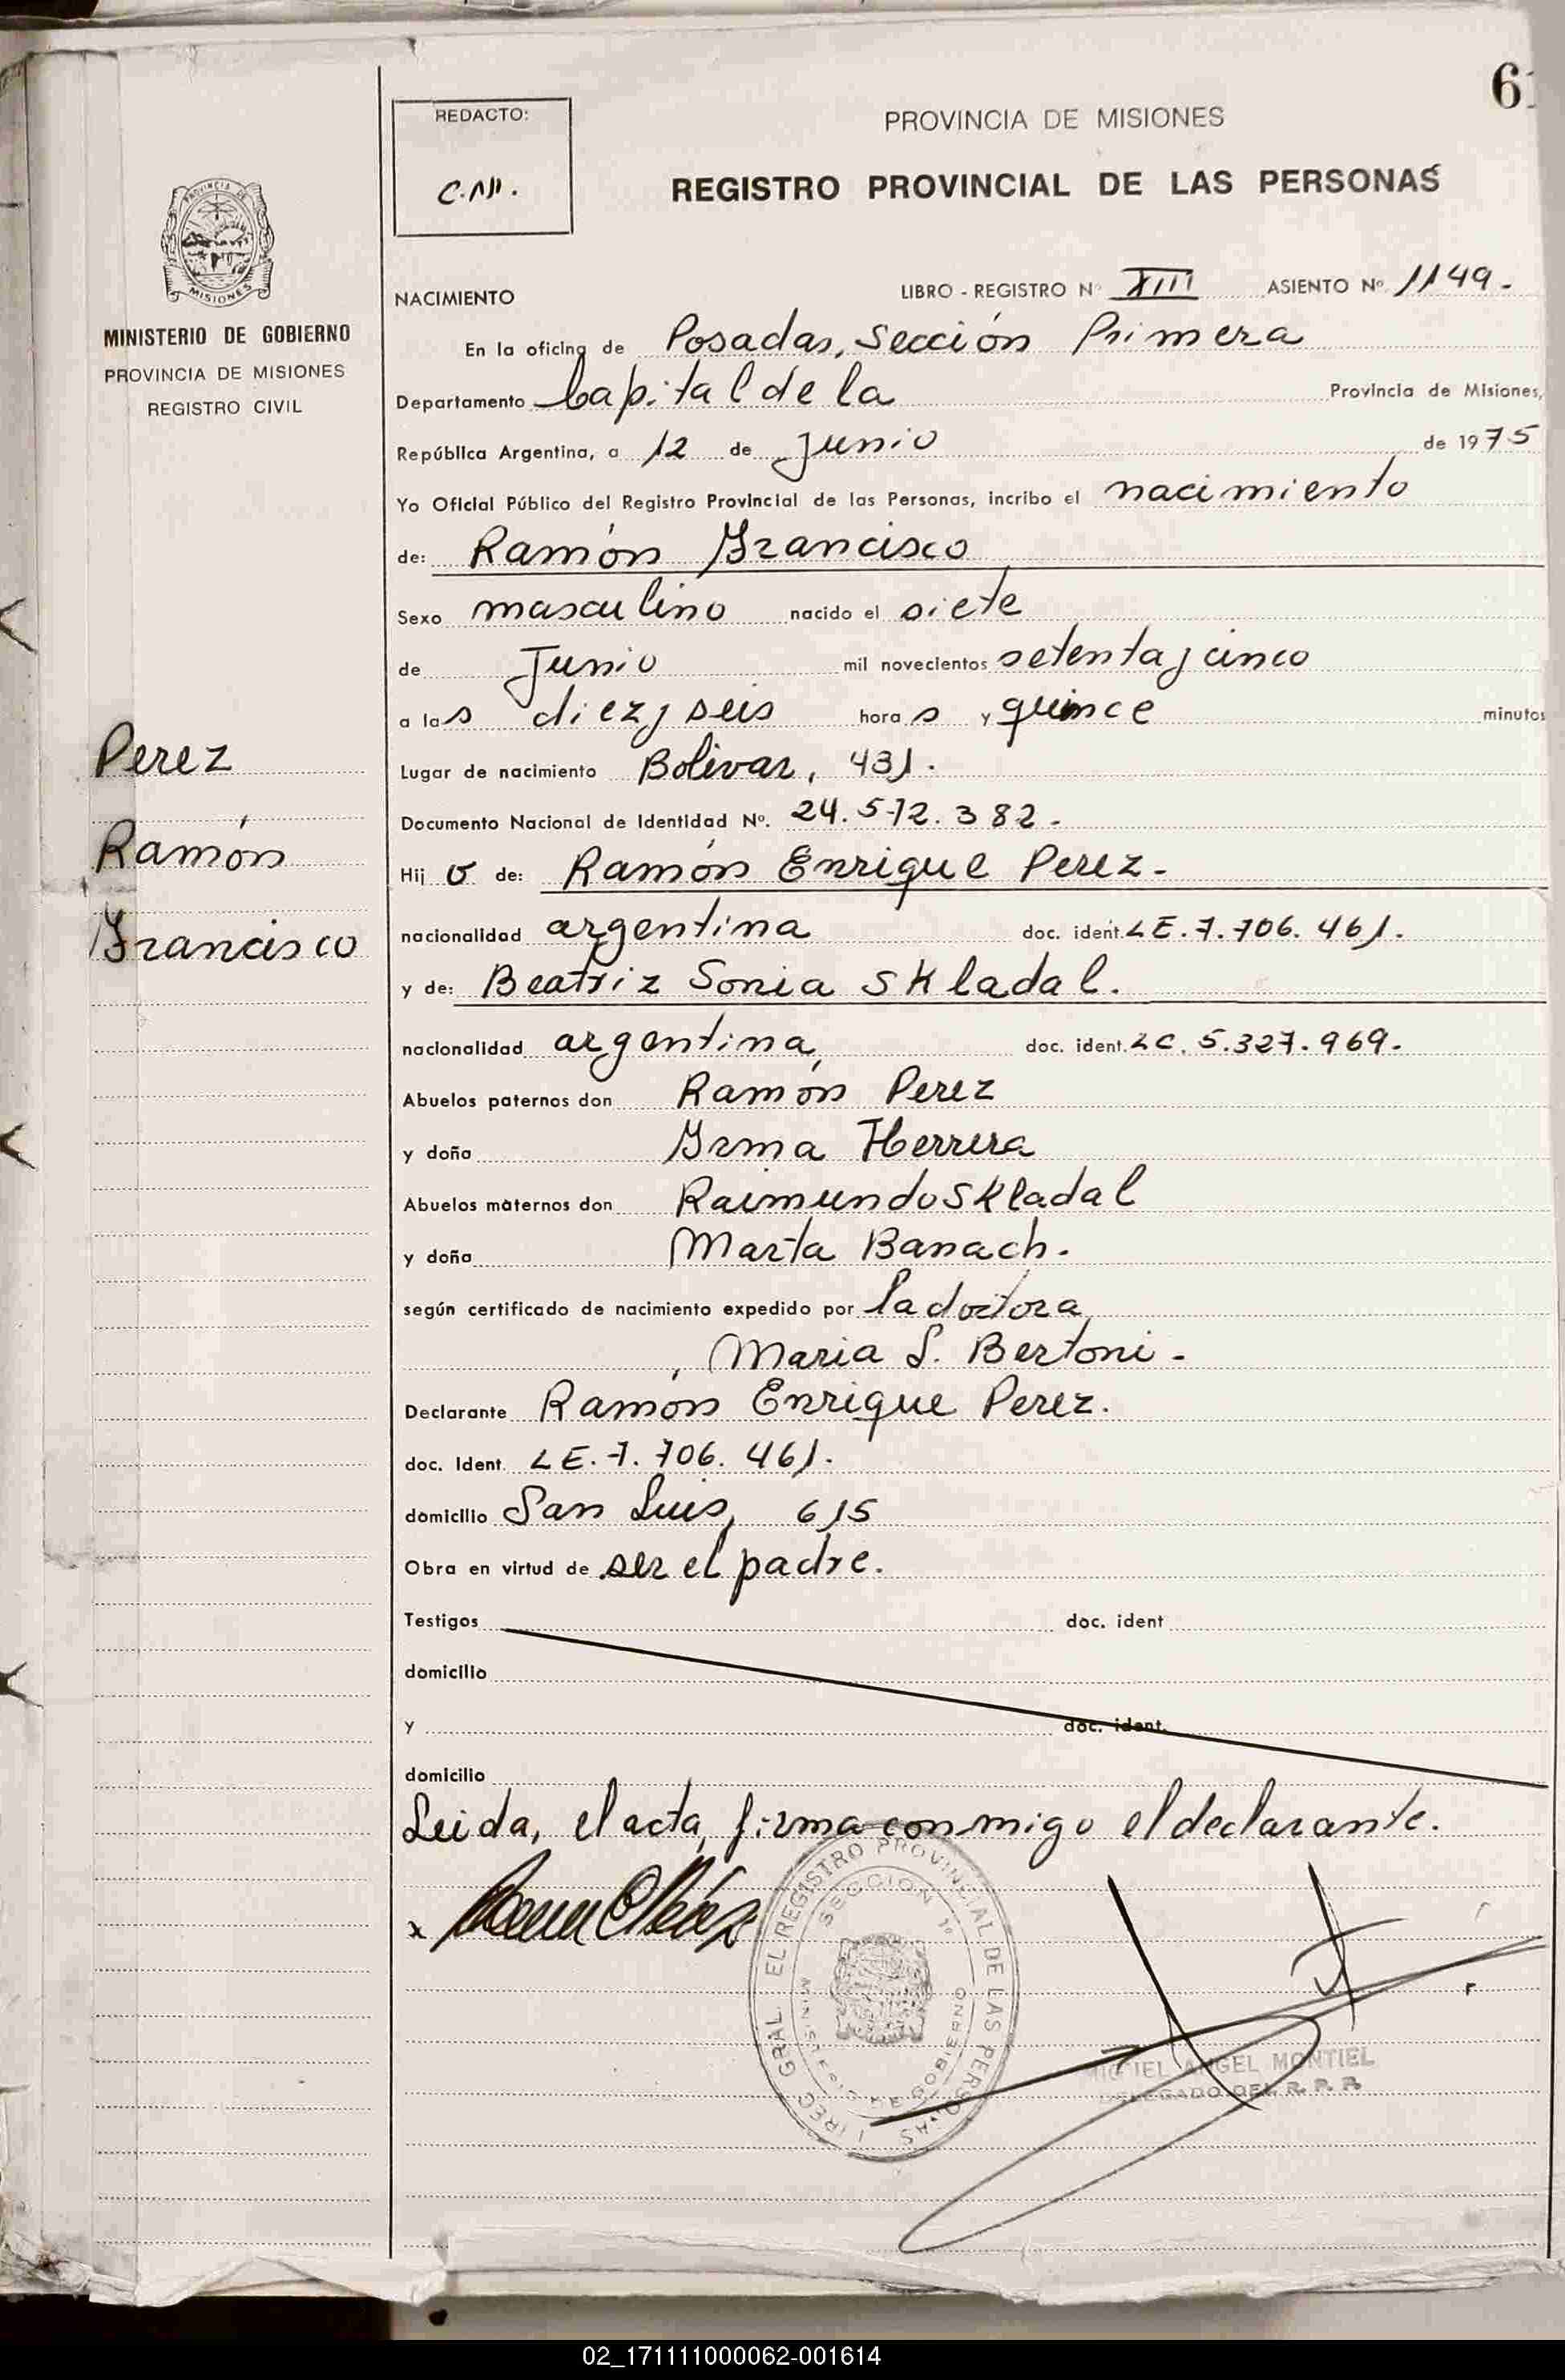 6
REDACTO:
C.M.
PROVINCIA DE MISIONES
REGISTRO PROVINCIAL DE LAS PERSONAS
PROVINCIA DE
MISIONES
MINISTERIO DE GOBIERNO
PROVINCIA DE MISIONES
REGISTRO CIVIL
NACIMIENTO LIBRO - REGISTRO Nº XIII ASIENTO Nº 1149.
En la oficina de Posadas, Sección Primera
Departamento Capital de la Provincia de Misiones,
República Argentina, a 12 de Junio de 1975
Yo Oficial Público del Registro Provincial de las Personas, incribo el nacimiento
de: Ramón Francisco
Sexo masculino nacido el siete
de Junio mil novecientos setenta y cinco
a las diez y seis horas y quince minutos
Perez
Ramón
Francisco
Lugar de nacimiento Bolivar, 431.
Documento Nacional de Identidad Nº. 24.572.382.
Hijo de: Ramón Enrique Perez.
nacionalidad argentina doc. ident. LE. 7.706.461.
y de: Beatriz Sonia Skladal.
nacionalidad argentina, doc. ident. LC. 5.327.969.
Abuelos paternos don Ramón Perez
y doña Irma Herrera
Abuelos maternos don Raimundo Skladal
y doña Marta Banach.
según certificado de nacimiento expedido por la doctora,
Maria S. Bertoni.
Declarante Ramón Enrique Perez.
doc. Ident. LE. 7.706.461.
domicilio San Luis, 615
Obra en virtud de ser el padre.
Testigos doc. ident
domicilio
y doc. ident.
domicilio
Leida, el acta, firma conmigo el declarante.
x
DIREC. GRAL. EL REGISTRO PROVINCIAL DE LAS PERSONAS
SECCION 1º
MINISTERIO DE GOBIERNO
MIGUEL ANGEL MONTIEL
DELEGADO DEL R. P. P.
02_171111000062-001614